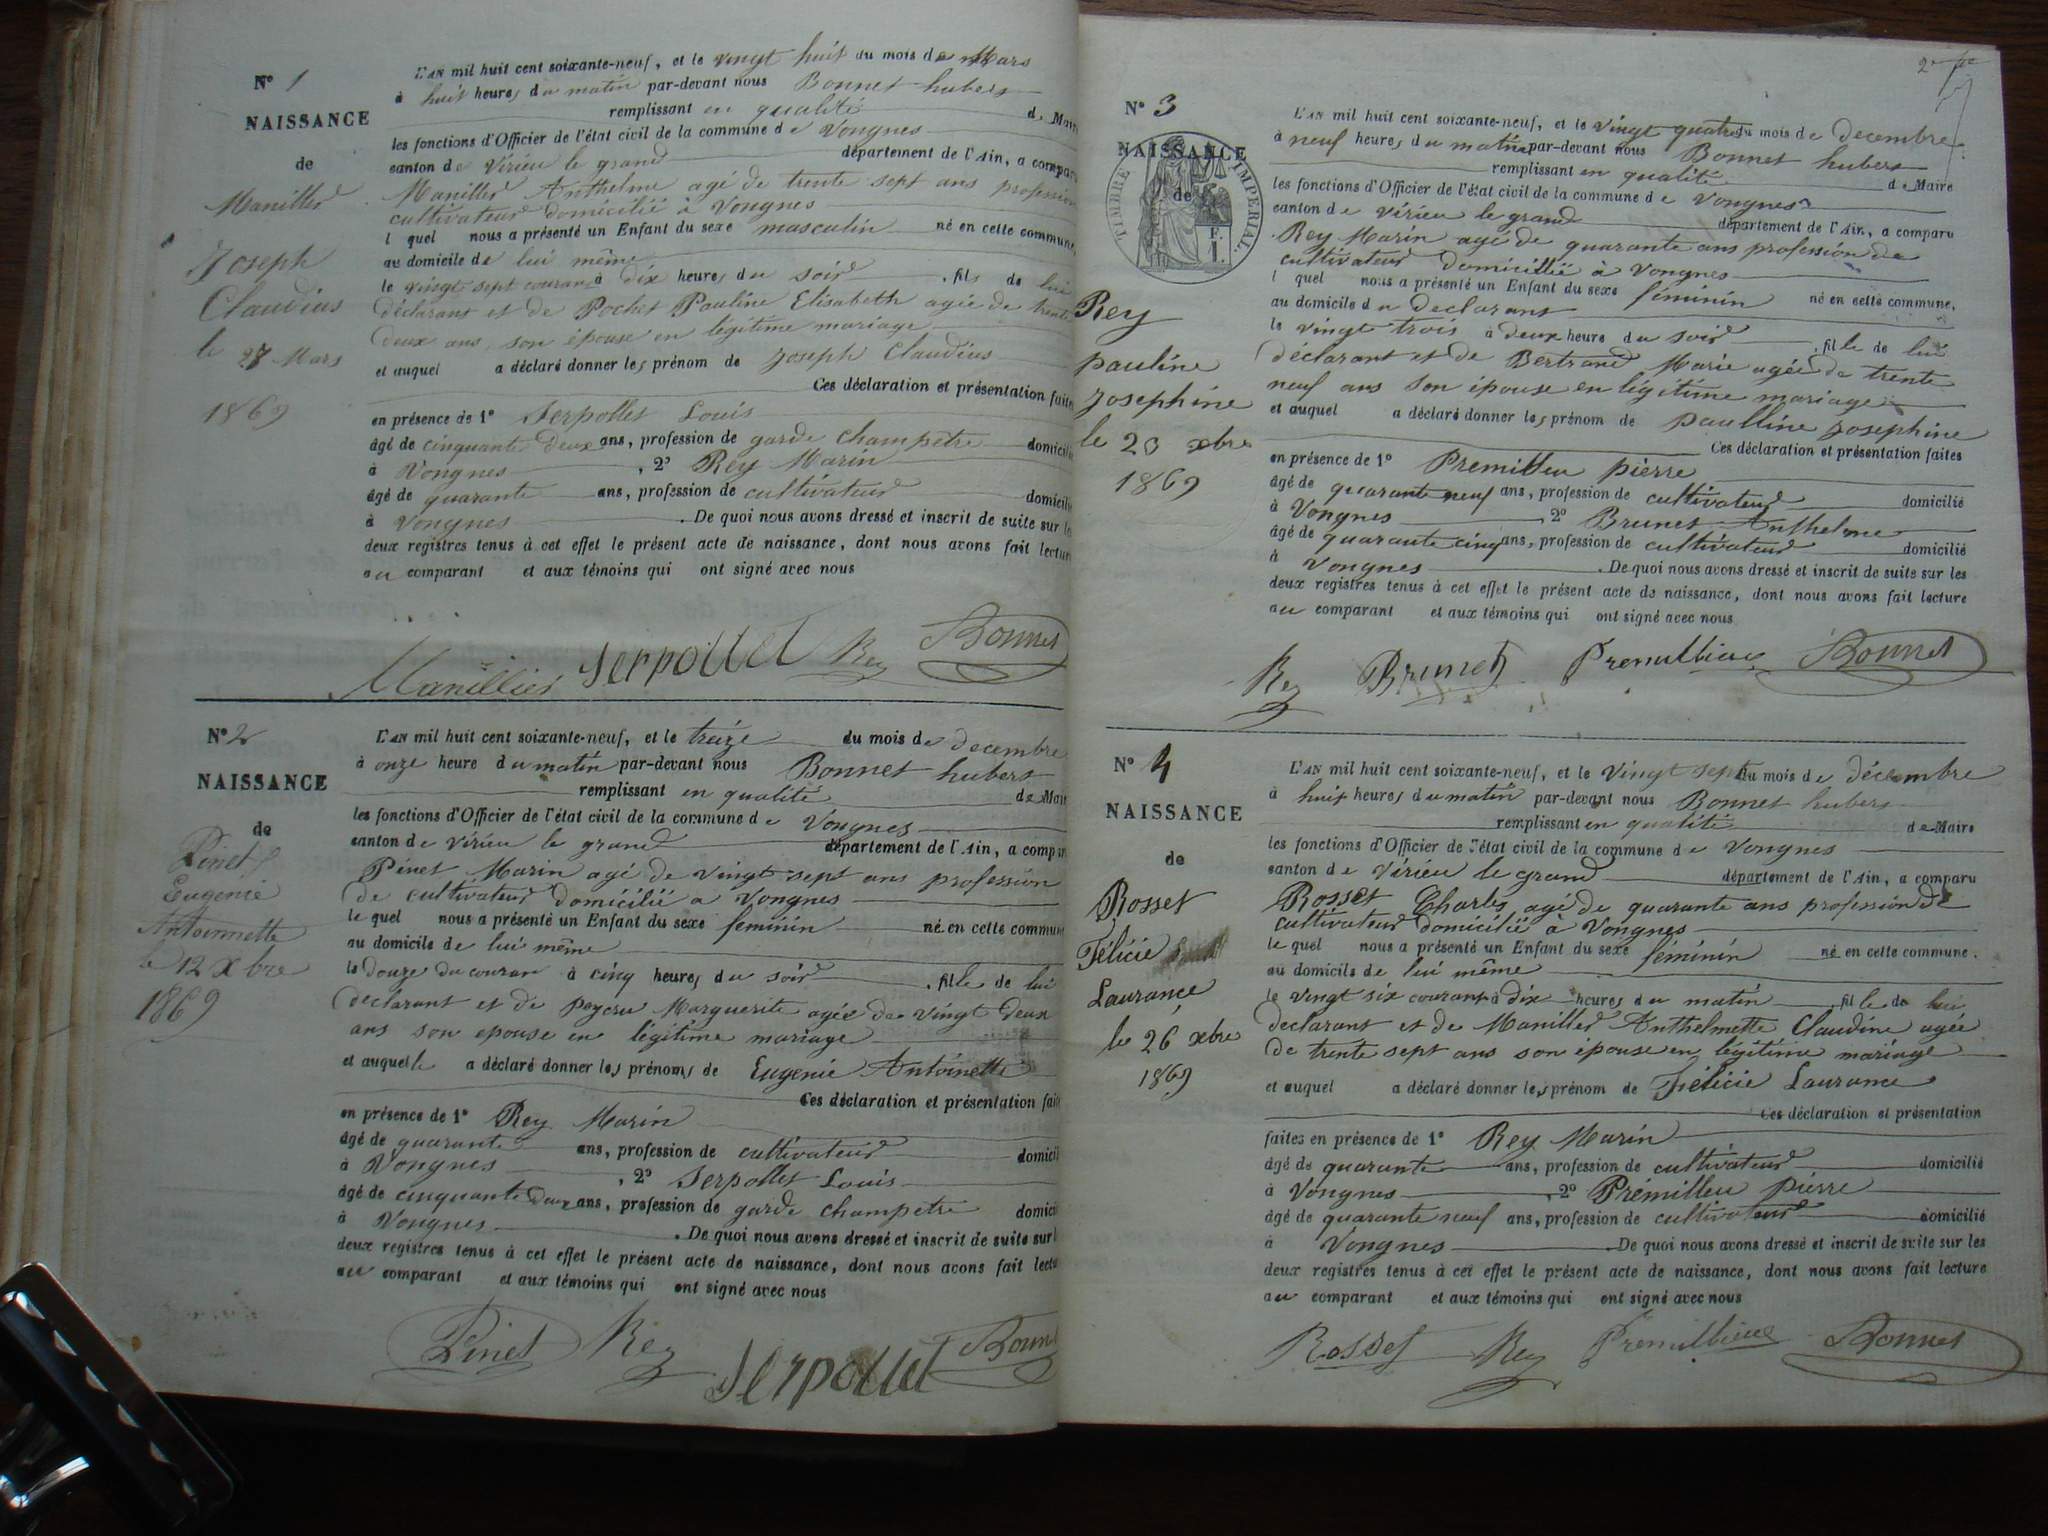 N° 1
NAISSANCE
de
Manillier
Joseph
Claudius
le 27 Mars
1869
L'AN mil huit cent soixante-neuf, et le vingt huit du mois de Mars
à huit heures du matin par-devant nous Bonnet hubert
remplissant en qualité de Maire
les fonctions d'Officier de l'état civil de la commune de Vongnes
canton de Virieu le grand département de l'Ain, a comparu
Manillier Anthelme agé de trente sept ans profession
cultivateur domicilié à Vongnes
l quel nous a présenté un Enfant du sexe masculin né en cette commune,
au domicile de lui même
le vingt sept courant à dix heures du soir , fils de lui
déclarant et de Pochet Pauline Elisabeth agée de trente
deux ans son épouse en légitime mariage
et auquel a déclaré donner les prénom de Joseph Claudius
Ces déclaration et présentation faites
en présence de 1° Serpollet Louis
âgé de cinquante deux ans, profession de garde champetre domicilié
à Vongnes , 2° Rey Marin
âgé de quarante ans, profession de cultivateur domicilié
à Vongnes . De quoi nous avons dressé et inscrit de suite sur le
deux registres tenus à cet effet le présent acte de naissance, dont nous avons fait lecture
au comparant et aux témoins qui ont signé avec nous
Manillier Serpollet Rey Bonnet
N° 2
NAISSANCE
de
Pinet
Eugenie
Antoinnette
le 12 Xbre
1869
L'AN mil huit cent soixante-neuf, et le treize du mois de decembre
à onze heure du matin par-devant nous Bonnet hubert
remplissant en qualité de Mair
les fonctions d'Officier de l'état civil de la commune de Vongnes
canton de virieu le grand département de l'Ain, a compar
Pinet Marin agé de vingt sept ans profession
de cultivateur domicilié a Vongnes
le quel nous a présenté un Enfant du sexe feminin né en cette commune
au domicile de lui même
le douze du couran à cinq heures du soir , fille de lui
declarant et de Marguerite agée de vingt deux
ans son epouse en légitime mariage
et auquelle a déclaré donner les prénoms de Eugenie Antoinette
Ces déclaration et présentation fait
en présence de 1° Rey Marin
âgé de quarante ans, profession de cultivateur domicil
à Vongnes , 2° Serpollet Louis
âgé de cinquante deux ans, profession de garde champetre domici
à Vongnes . De quoi nous avons dressé et inscrit de suite sur l
deux registres tenus à cet effet le présent acte de naissance, dont nous avons fait lectu
au comparant et aux témoins qui ont signé avec nous
Pinet Rey Serpollet Bonnet
N° 3
NAISSANCE
de
TIMBRE IMPERIAL
Rey
pauline
Josephine
le 23 xbre
1869
L'AN mil huit cent soixante-neuf, et le vingt quatre du mois de decembre
à neuf heures du matin par-devant nous Bonnet hubert
remplissant en qualité de Maire
les fonctions d'Officier de l'état civil de la commune de Vongnes
canton de virieu le grand département de l'Ain, a comparu
Rey Marin agé de quarante ans profession de
cultivateur domicillié à Vongnes
l quel nous a présenté un Enfant du sexe féminin né en cette commune,
au domicile du declarant
le vingt trois à deux heure du soir , fille de lui
déclarant et de Bertrand Marie agée de trente
neuf ans son épouse en légitime mariage
et auquel a déclaré donner les prénom de paulline Josephine
Ces déclaration et présentation faites
en présence de 1° Premilleu pierre
âgé de quarante neuf ans, profession de cultivateur domicilié
à Vongnes 2° Brunet Anthelme
âgé de quarante cinq ans, profession de cultivateur domicilié
à Vongnes . De quoi nous avons dressé et inscrit de suite sur les
deux registres tenus à cet effet le présent acte de naissance, dont nous avons fait lecture
au comparant et aux témoins qui ont signé avec nous
Rey Brunet Premillieu Bonnet
N° 4
NAISSANCE
de
Rosset
Félicie
Laurance
le 26 xbre
1869
L'AN mil huit cent soixante-neuf, et le vingt sept du mois de décembre
à huit heures du matin par-devant nous Bonnet hubert
remplissant en qualité de Maire
les fonctions d'Officier de l'état civil de la commune de Vongnes
canton de Virieu le grand département de l'Ain, a comparu
Rosset Charles agé de quarante ans profession de
cultivateur domicilié à Vongnes
le quel nous a présenté un Enfant du sexe féminin né en cette commune.
au domicile de lui même
le vingt six courant à dix heures du matin , fille de lui
declarant et de Manillier Anthelmette Claudine agée
de trente sept ans son épouse en légitime mariage
et auquel a déclaré donner les prénom de Félicie Laurance
Ces déclaration et présentation
faites en présence de 1° Rey Marin
âgé de quarante ans, profession de cultivateur domicilié
à Vongnes , 2° Prémilleu pierre
âgé de quarante neuf ans, profession de cultivateur domicilié
à Vongnes De quoi nous avons dressé et inscrit de suite sur les
deux registres tenus à cet effet le présent acte de naissance, dont nous avons fait lecture
au comparant et aux témoins qui ont signé avec nous
Rosset Rey Premillieu Bonnet